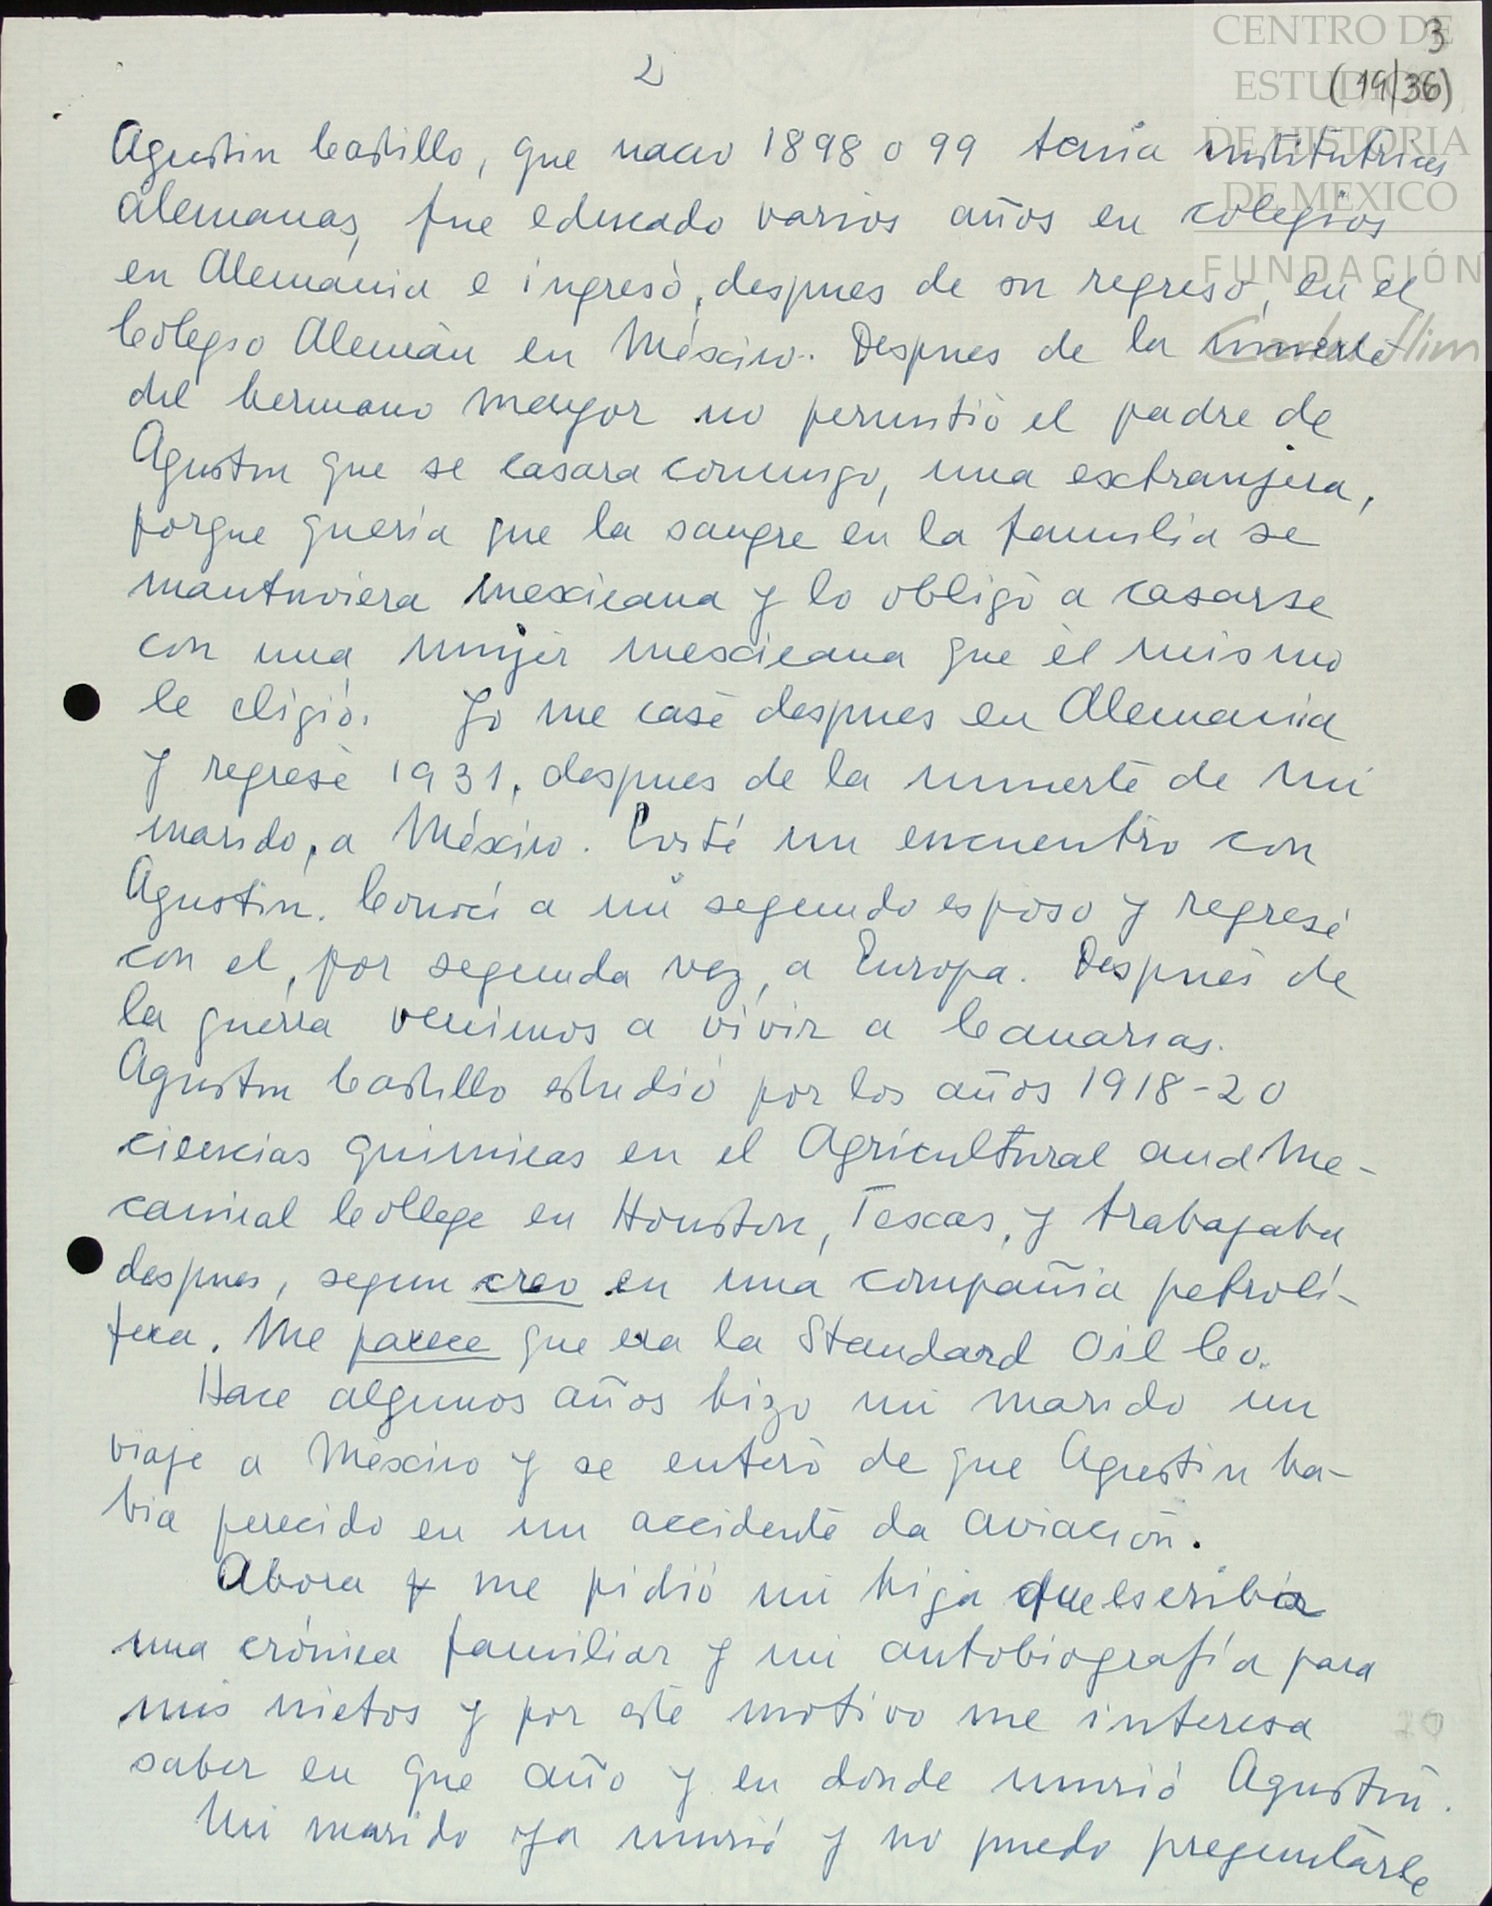 CENTRO DE
ESTUDIOS
DE HISTORIA
DE MÉXICO
FUNDACIÓN
Carlos Slim
3
(19/36)
2
Agustin Castillo, que nacio 1898 o 99 tenia institutrices
alemanas, fue educado varios años en colegios
en Alemania e ingresó, despues de su regreso, en el
Colegio Alemán en México. Despues de la muerte
del hermano mayor no permitió el padre de
Agustin que se casara conmigo, una extranjera,
porque queria que la sangre en la familia se
mantuviera mexicana y lo obligó a casarse
con una mujer mexicana que él mismo
le eligió. Yo me casé despues en Alemania
y regresé 1931, despues de la muerte de mi
marido, a México. Evité un encuentro con
Agustin. Conocí a mi segundo esposo y regresé
con el, por segunda vez, a Europa. Después de
la guerra venimos a vivir a Canarias.
Agustin Castillo estudió por los años 1918-20
ciencias quimicas en el Agricultural and Me-
canical College en Houston, Texas, y trabajaba
despues, segun creo en una compañia petrolí-
fera. Me parece que era la Standard Oil Co.
Hace algunos años hizo mi marido un
viaje a México y se enteró de que Agustin ha-
bia perecido en un accidente da aviación.
Ahora me pidió mi hija que escriba
una crónica familiar y mi autobiografía para
mis nietos y por este motivo me interesa
saber en que año y en donde murió Agustin.
Mi marido ya murió y no puedo preguntarle
20